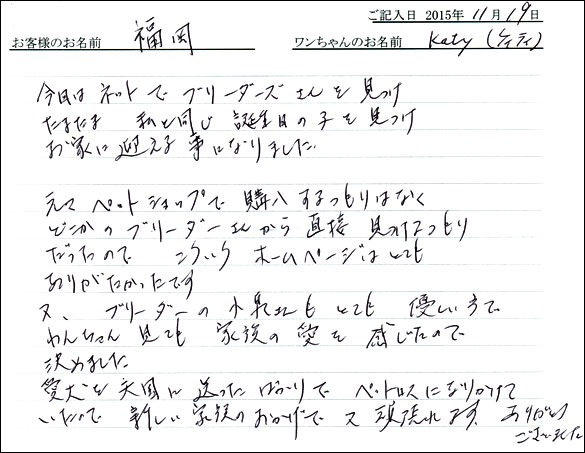 ご記入日 2015年 11月 19日
お客様のお名前 福岡 ワンちゃんのお名前 Katy (ケイティ)
今日は ネットで ブリーダーズさんを 見つけ
たまたま 私と同じ 誕生日の子を 見つけ
お家に 迎える 事になりました.
元々 ペットショップで 購入するつもりはなく
どこかのブリーダーさんから 直接 見つけるつもり
だったので こういう ホームページは とても
ありがたかったです
又、 ブリーダーの 小泉さんも とても 優しい方で
わんちゃん 見ても 家族の 愛を 感じたので
決めました
愛犬を 天国に 送ったばかりで ペットロスになりかけて
いたので 新しい 家族のおかげで 又 頑張れます、 ありがとう
ございました